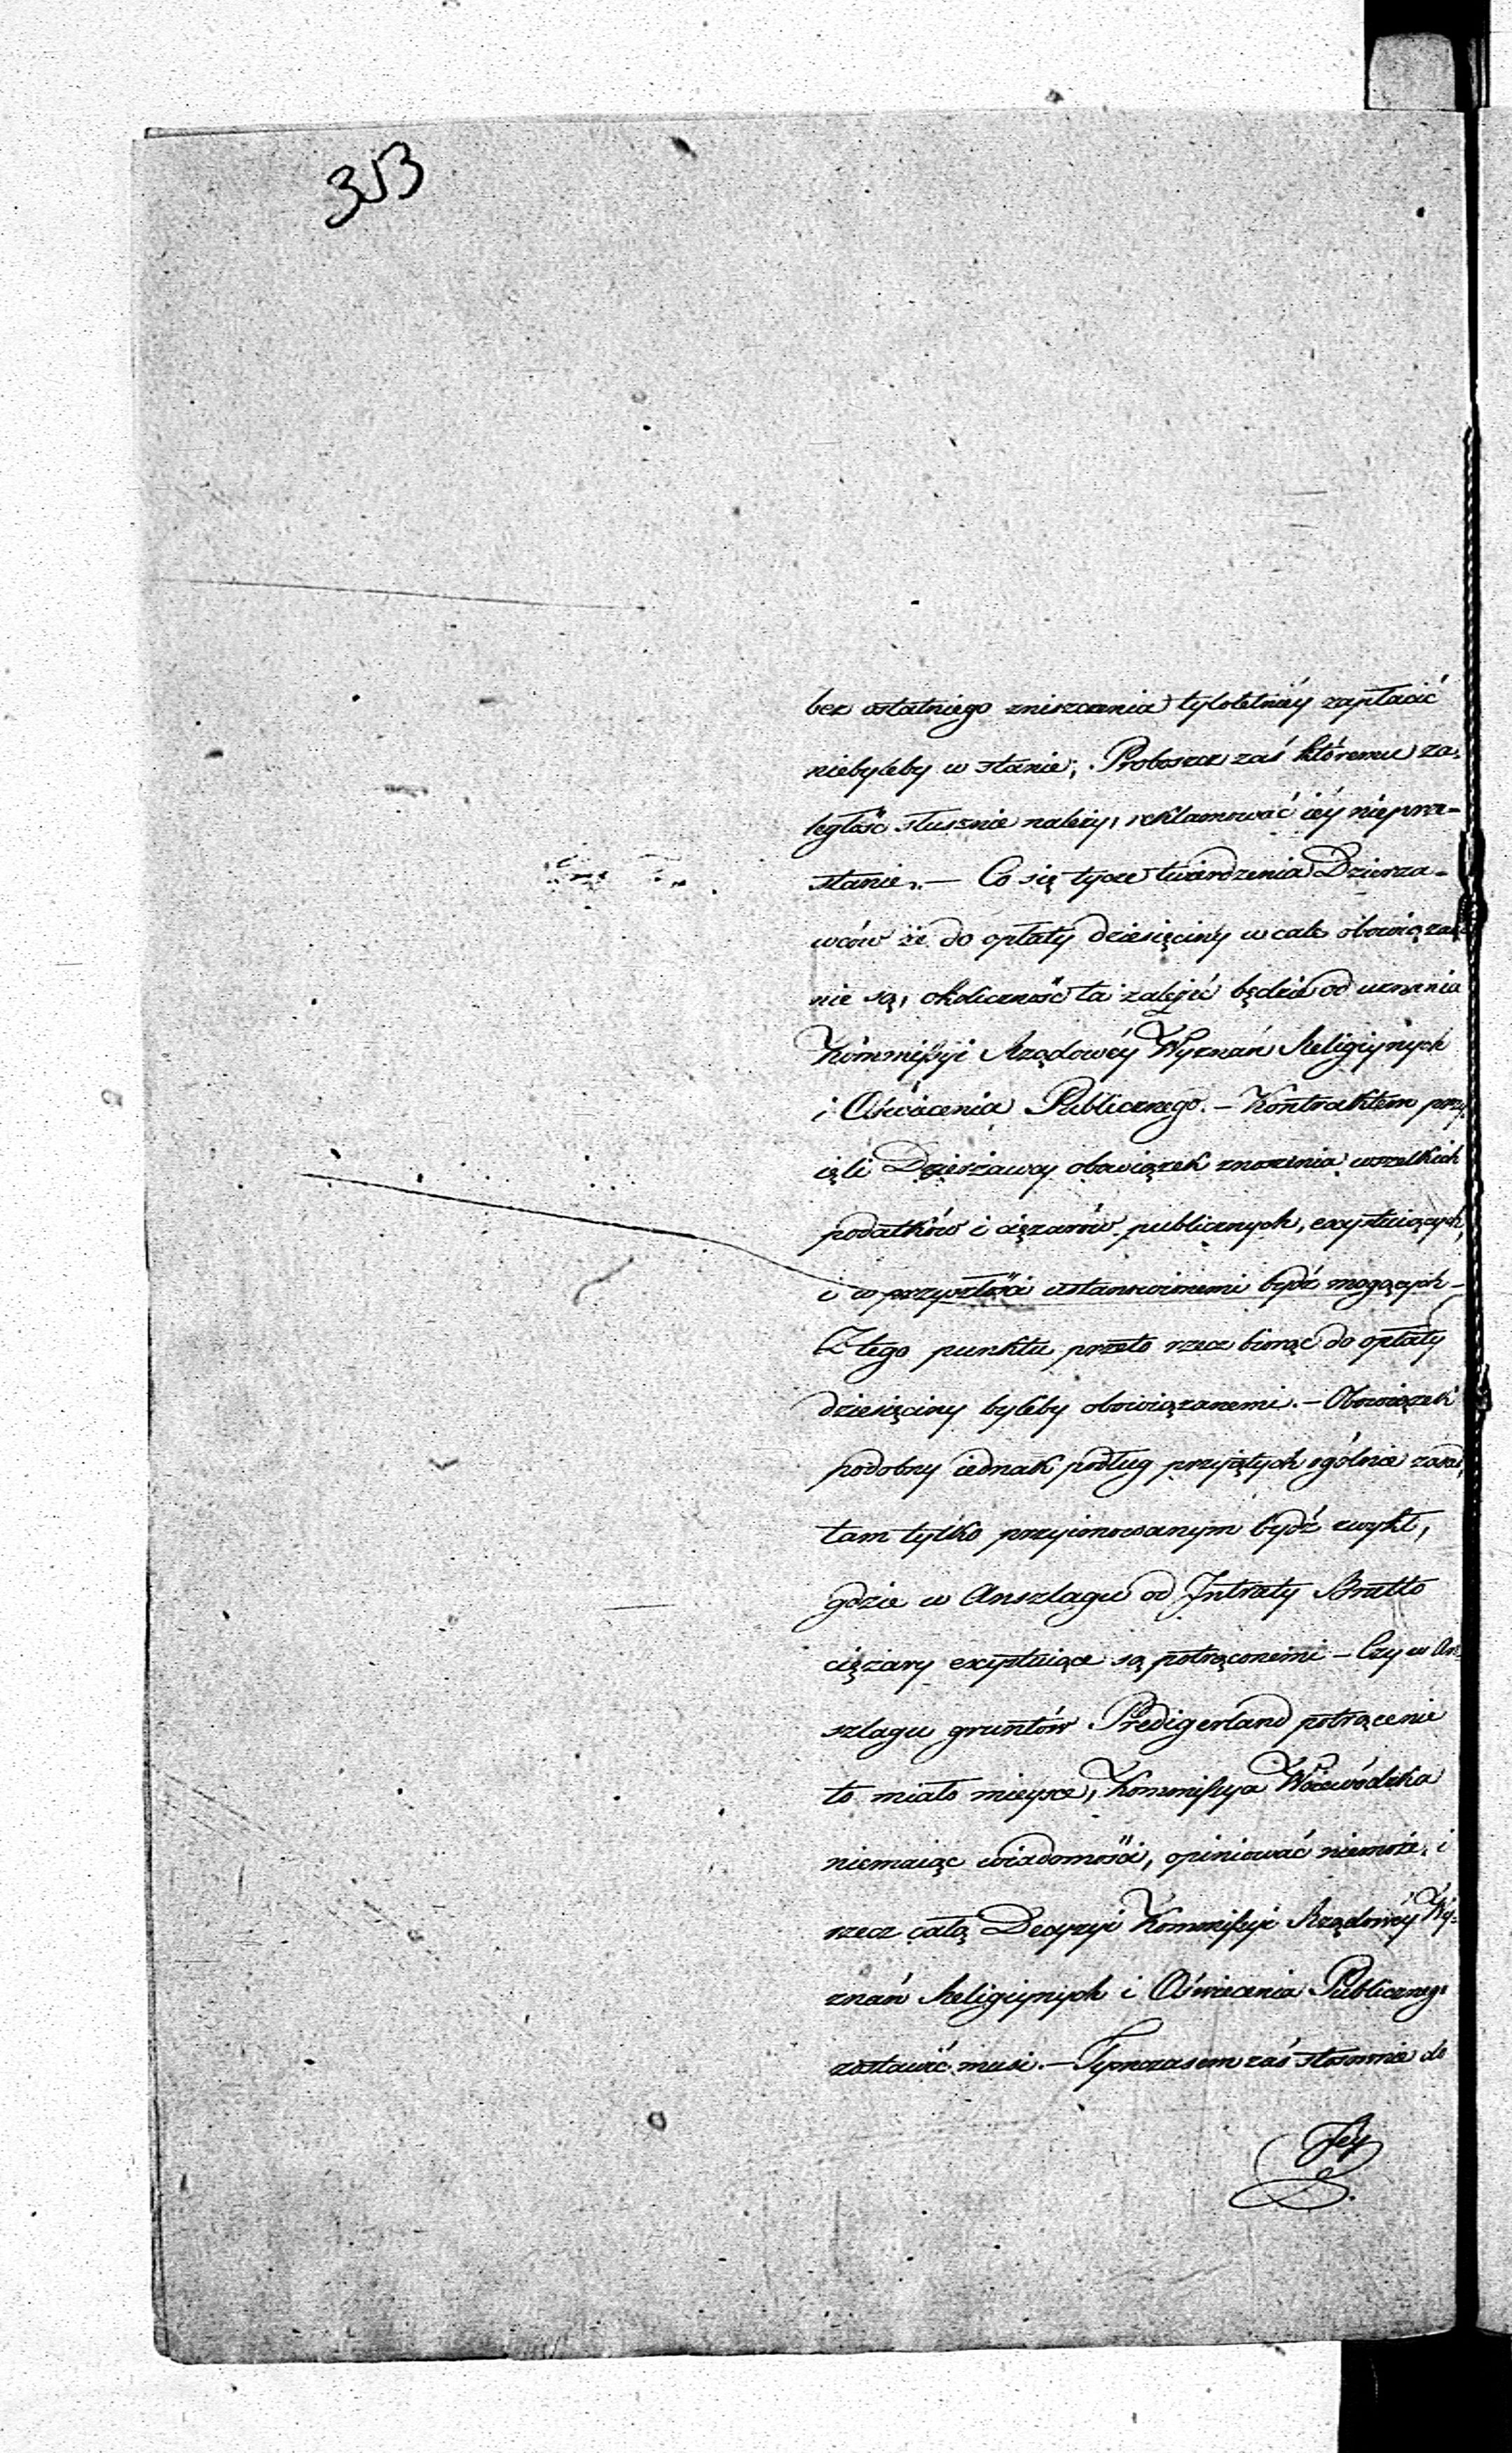 313
bez ostatniego zniszczenia tyloletniéy zapłacić
niebyłeby w stanie; Proboszcz zaś któremu za-
ległość słusznie należy, reklamować iéy nieprze-
stanie. — Co się tycze twierdzenia Dzierza-
wców że do opłaty dziesięciny wcale obowiązani
nie są, okoliczność ta zależeć będzie od uznania
Kommissyi Rządowéy Wyznań Religiynych
i Oświecenia Publicznego. — Kontraktem przy-
ięli Dzierżawcy obowiązek znoszenia wszelkich
podatków i ciężarów publicznych, exystuiących,
i w przyszłości ustanowionemi bydź mogących —
Z tego punktu przeto rzecz biorąc do opłaty
dziesięciny byleby obowiązanemi. — Obowiązek
podobny iednak podług przyiętych ogólnie zasad,
tam tylko przyimowanym bydź zwykł,
gdzie w Anszlagu od Intraty Brutto
ciężary exystuiące są potrąconemi — Czy w An-
szlagu gruntów Predigerland potrącenie
to miało mieysce, Kommissya Woiewódzka
niemaiąc wiadomości, opiniować niemoże, i
rzecz całą Decyzyi Kommissyi Rządowéy Wy-
znań Religiynych i Oświecenia Publicznego
zostawić musi. — Tymczasem zaś stosownie do
Jéy